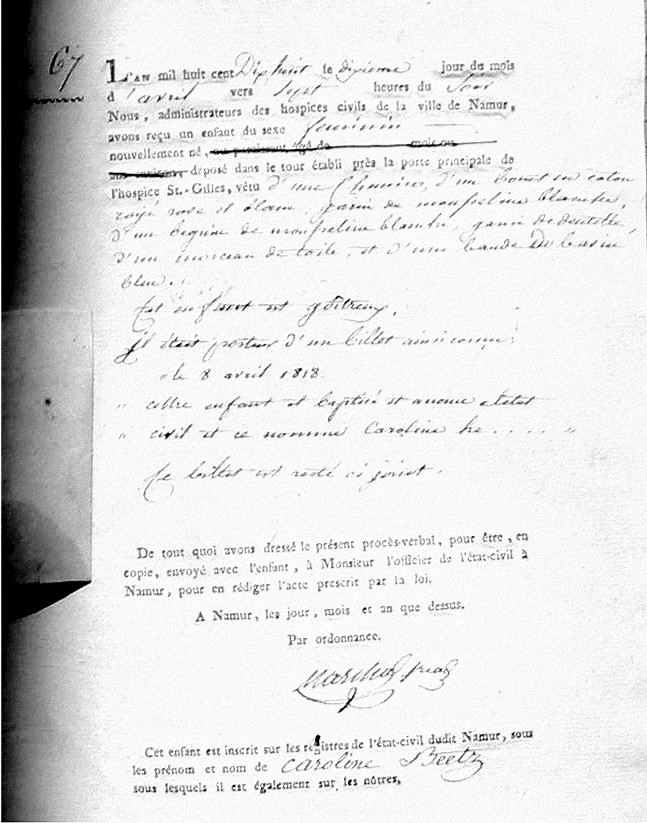 67
L'AN mil huit cent Dix huit le dixieme jour du mois
d'avril vers Sept heures du Soir
Nous, administrateurs des hospices civils de la ville de Namur,
avons reçu un enfant du sexe feminin
nouvellement né, ou paraissant âgé de mois ou
déposé dans le tour établi près la porte principale de
l'hospice St.-Gilles, vêtu d'une Chemise, d'un bonet en coton
rayé rose et blanc, garni de mousseline blanche,
d'un beguine de mousseline blanche, garni de dentelle,
d'un morceau de toile, et d'une bande de basin
bleu.
Cet enfant est goitreux.
Il était porteur d'un billet ainsi conçu:
"le 8 avril 1818.
" cettre enfant et baptisé et anome a letat
" civil et ce nomme Caroline be..... "
Ce billet est resté ci joint.
De tout quoi avons dressé le présent procès-verbal, pour être, en
copie, envoyé avec l'enfant, à Monsieur l'officier de l'état-civil à
Namur, pour en rédiger l'acte prescrit par la loi.
A Namur, les jour, mois et an que dessus.
Par ordonnance.
Cet enfant est inscrit sur les registres de l'état-civil dudit Namur, sous
les prénom et nom de Caroline Beetz
sous lesquels il est également sur les nôtres,